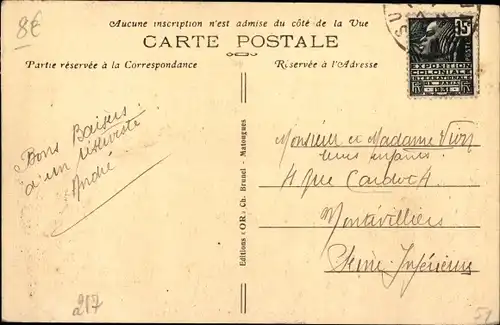 8€
Aucune inscription n'est admise du côté de la Vue
CARTE POSTALE
Partie réservée à la Correspondance
Réservée à l'Adresse
15
POSTES
EXPOSITION
COLONIALE
INTERNATIONALE
DE PARIS
1931
SU
Bons Baisers
d'un réserviste
André
Editions "OR" Ch. Brunel - Matougues
Monsieur et Madame
leurs enfants
4 Rue
Montivilliers
Seine Inférieure
217
51